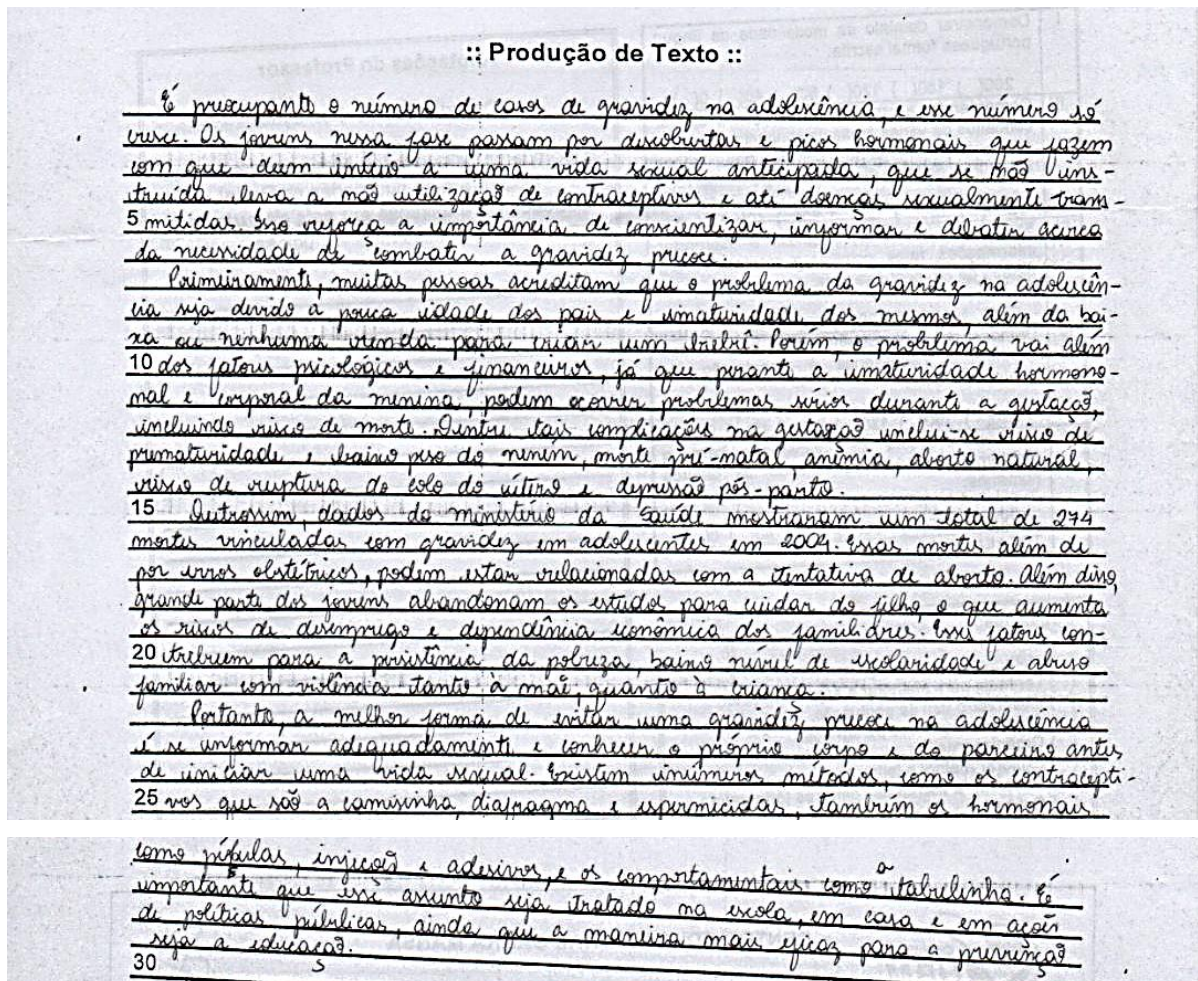 :: Produção de Texto ::
É preocupante o número de casos de gravidez na adolescência, e esse número só
cresce. Os jovens nessa fase passam por descobertas e picos hormonais que fazem
com que deem início a uma vida sexual antecipada que se não ins-
truída leva a não utilização de contraceptivos e até doenças sexualmente trans-
5 mitidas. Isso reforça a importância de conscientizar, informar e debater acerca
da necessidade de combater a gravidez precoce.
Primeiramente, muitas pessoas acreditam que o problema da gravidez na adolescên-
cia seja devido a pouca idade dos pais e imaturidade dos mesmos, além da bai-
xa ou nenhuma renda para criar um bebê. Porém, o problema vai além
10 dos fatores psicológicos e financeiros, já que perante a imaturidade hormono-
nal e corporal da menina, podem ocorrer problemas sérios durante a gestação,
incluindo risco de morte. Dentre tais complicações na gestação inclui-se risco de
prematuridade e baixo peso do neném, morte pré-natal, anemia, aborto natural,
risco de ruptura do colo do útero e depressão pós-parto.
15 Outrossim, dados do ministério da saúde mostraram um total de 274
mortes vinculadas com gravidez em adolescentes em 2004. Essas mortes além de
por erros obstétricos, podem estar relacionadas com a tentativa de aborto. Além disso,
grande parte dos jovens abandonam os estudos para cuidar do filho, o que aumenta
os riscos de desemprego e dependência econômica dos familiares. Esses fatores con-
20 tribuem para a persistência da pobreza, baixo nível de escolaridade e abuso
familiar com violência tanto à mãe, quanto à criança.
Portanto, a melhor forma de evitar uma gravidez precoce na adolescência
é se informar adequadamente e conhecer o próprio corpo e do parceiro antes
de iniciar uma vida sexual. Existem inúmeros métodos, como os contracepti-
25 vos que são a camisinha, diafragma e espermicidas, também os hormonais
como pípulas, injeção e adesivos, e os comportamentais como a tabelinha. É
importante que esse assunto seja tratado na escola, em casa e em ações
de políticas públicas, ainda que a maneira mais eficaz para a prevenção
seja a educação.
30